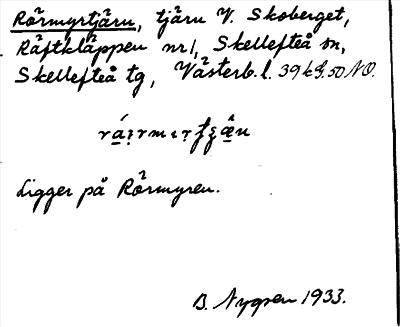 Rörmyrtjärn, tjärn V. Skoberget,
Räftkläppen nr 1, Skellefteå sn,
Skellefteå tg, Västerb. l. 39 k G. 50 NO.
Ligger på Rörmyren.
B. Nygren 1933.